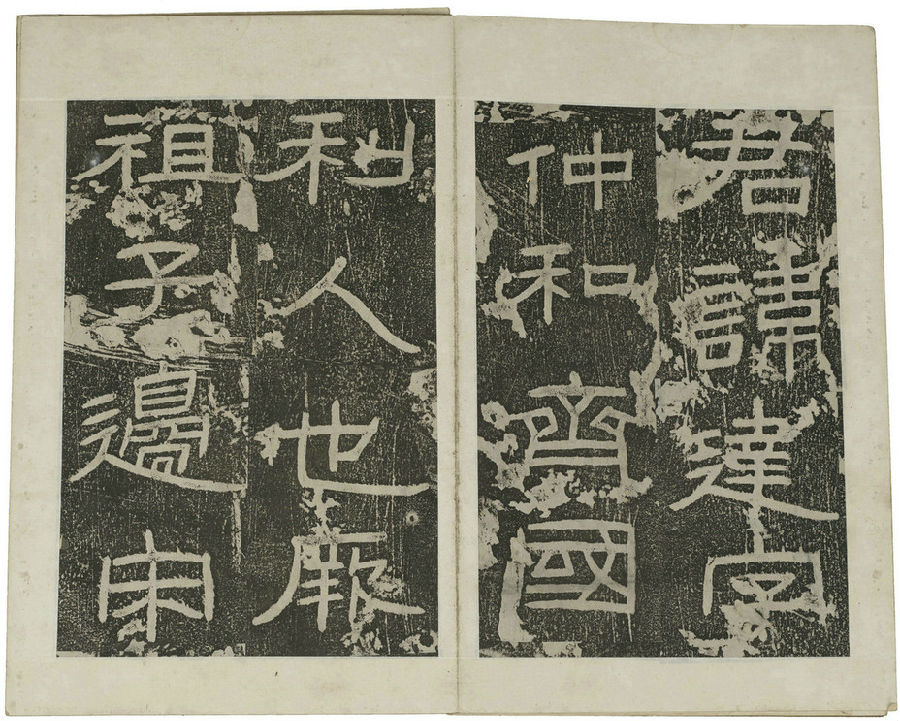 君諱建字
仲和齊國
利人也厥
祖子邊